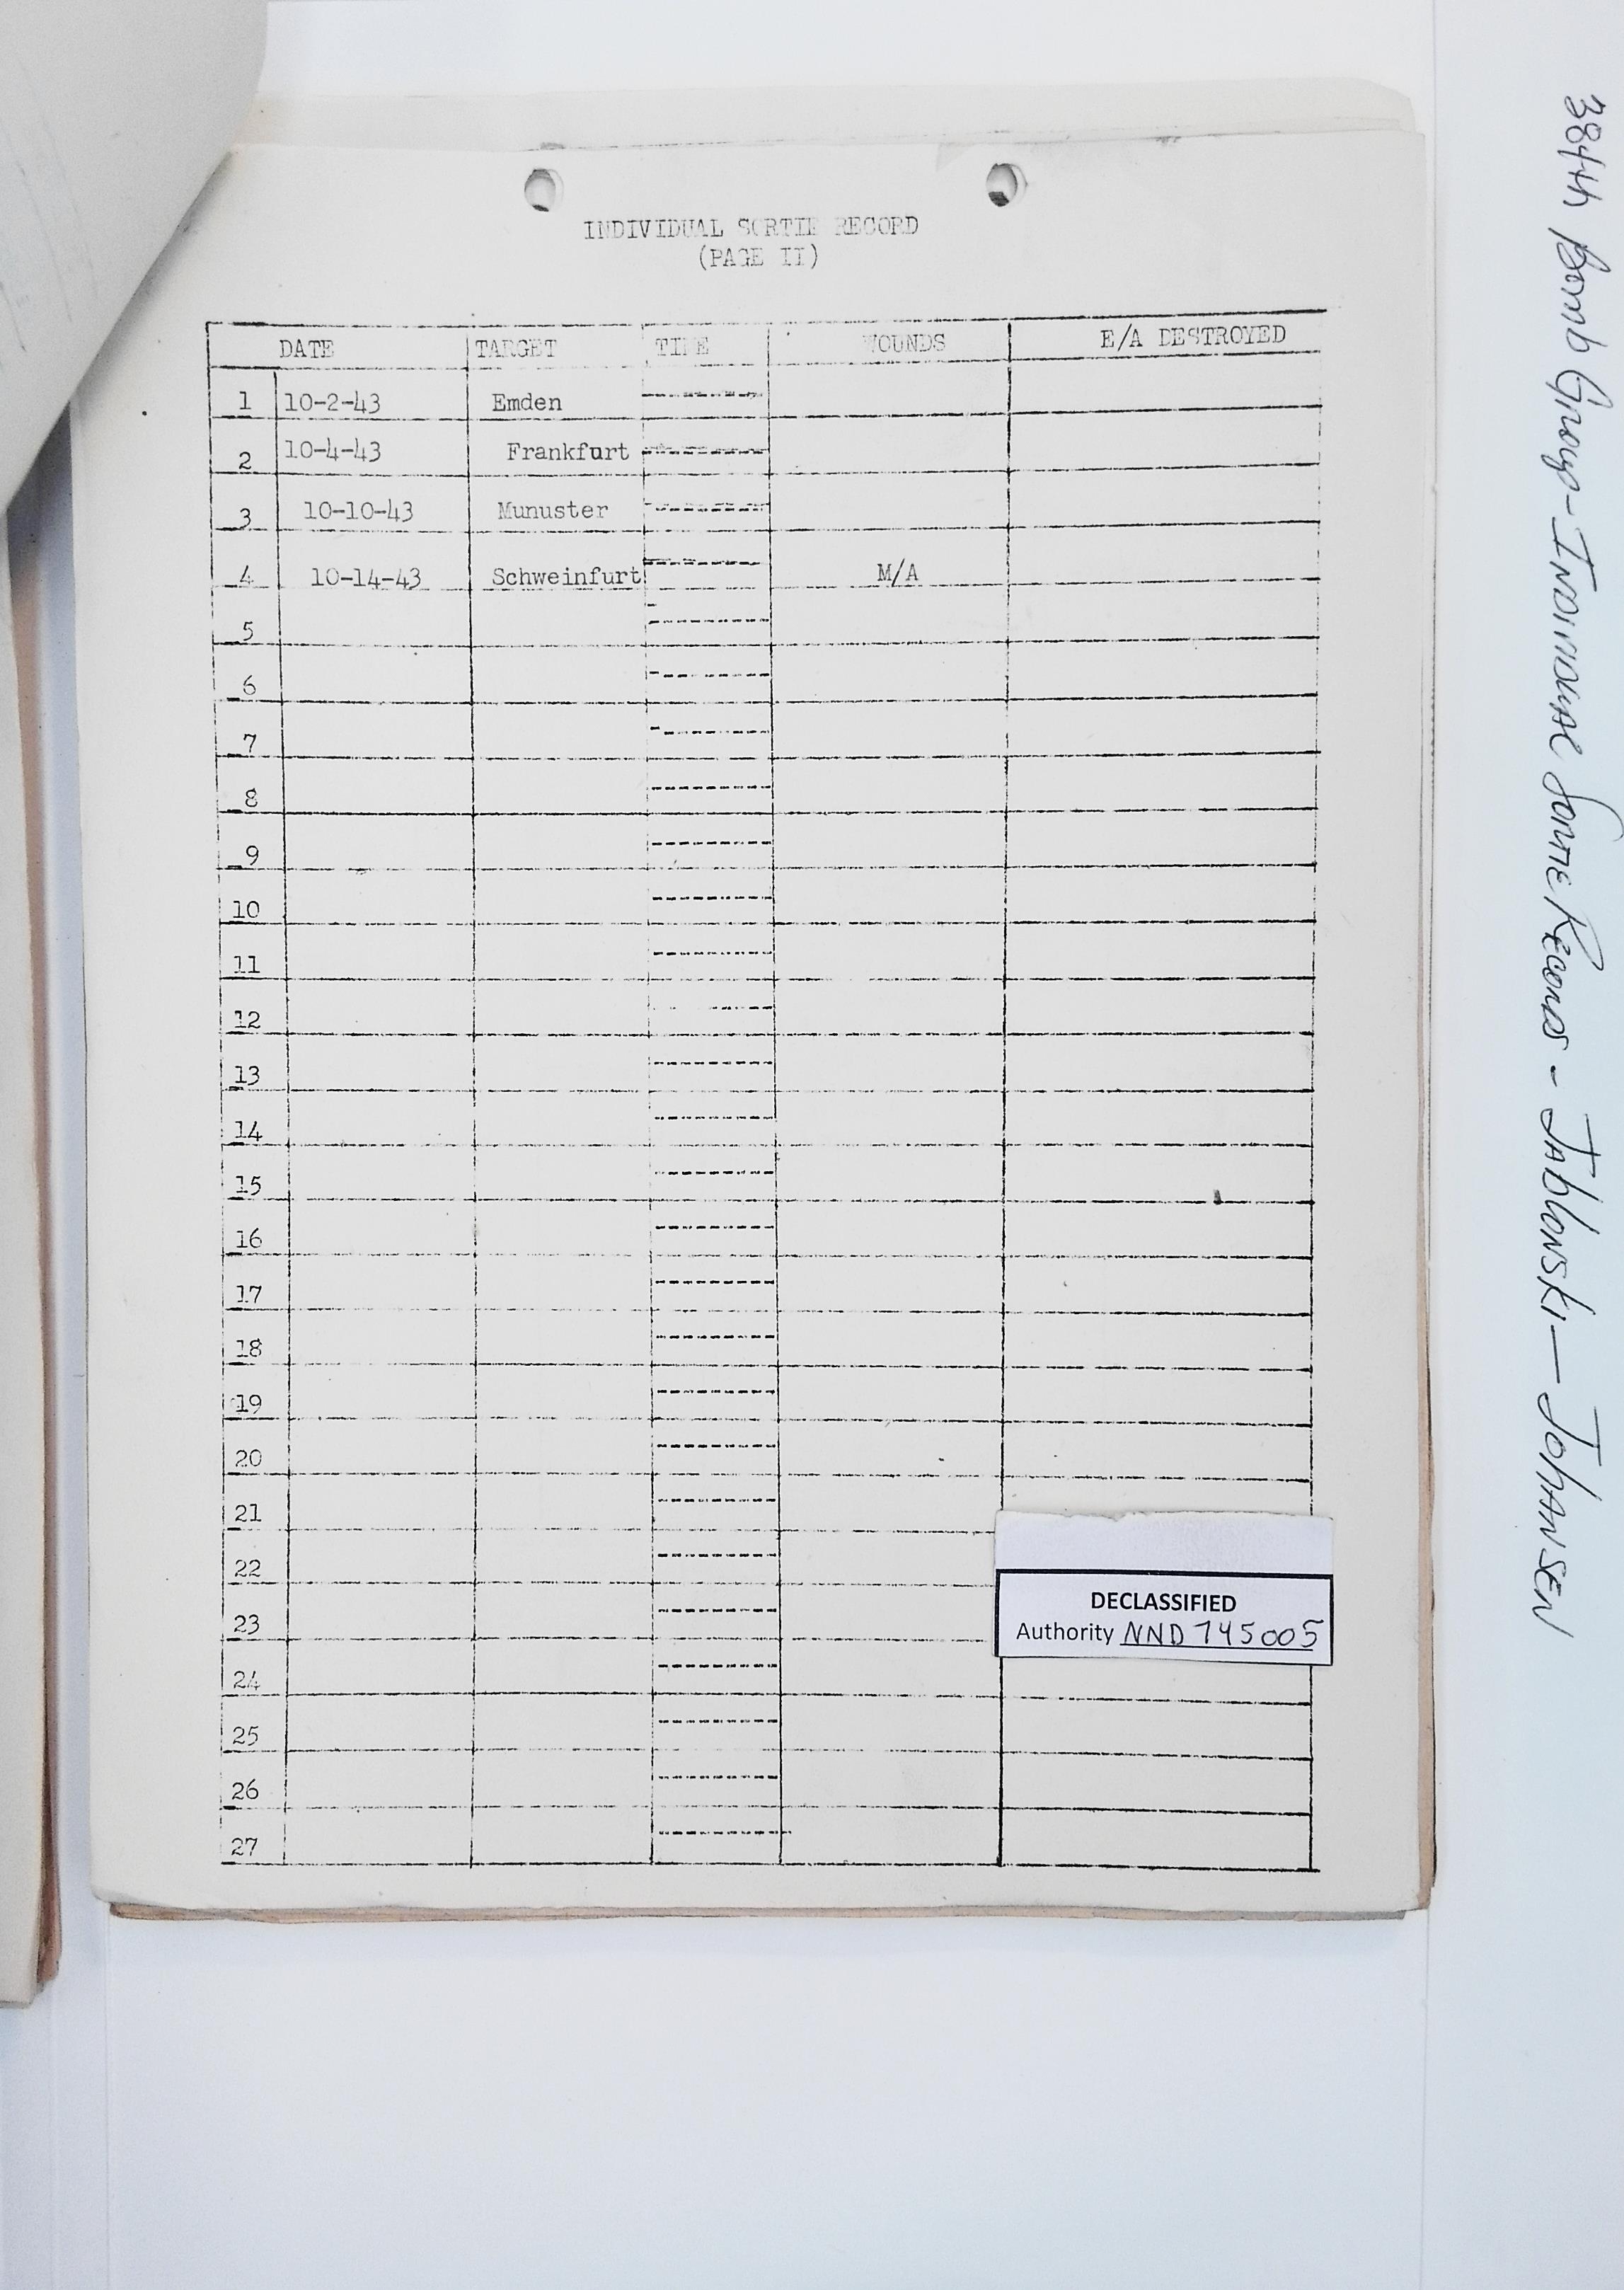 INDIVIDUAL SORTIE RECORD
(PAGE II)
DATE TARGET TIME WOUNDS E/A DESTROYED
1 10-2-43 Emden
2 10-4-43 Frankfurt
3 10-10-43 Munuster
4 10-14-43 Schweinfurt M/A
5
6
7
8
9
10
11
12
13
14
15
16
17
18
19
20
21
22
23
24
25
26
27
DECLASSIFIED
Authority NND 745005
384th Bomb Group - Individual Sortie Records - Jablonski - Johansen